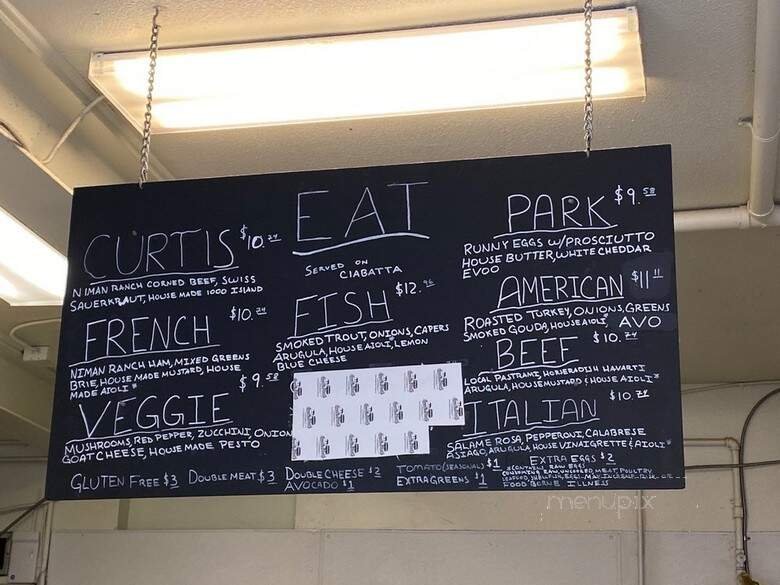 EAT
SERVED ON
CIABATTA
CURTIS $10.
NIMAN RANCH CORNED BEEF, SWISS
SAUERKRAUT, HOUSE MADE 1000 ISLAND
FRENCH $10.
NIMAN RANCH HAM, MIXED GREENS
BRIE, HOUSE MADE MUSTARD, HOUSE
MADE AIOLI*
VEGGIE $9.58
MUSHROOMS, RED PEPPER, ZUCCHINI, ONION
GOAT CHEESE, HOUSE MADE PESTO
FISH $12.
SMOKED TROUT, ONIONS, CAPERS
ARUGULA, HOUSE AIOLI, LEMON
BLUE CHEESE
PARK $9.58
RUNNY EGGS W/PROSCIUTTO
HOUSE BUTTER, WHITE CHEDDAR
EVOO
AMERICAN $11.11
ROASTED TURKEY, ONIONS, GREENS
SMOKED GOUDA, HOUSE AIOLI, AVO
BEEF $10.
LOCAL PASTRAMI, HORSERADISH HAVARTI
ARUGULA, HOUSE MUSTARD & HOUSE AIOLI*
ITALIAN $10.
SALAME ROSA, PEPPERONI, CALABRESE
ASIAGO, ARUGULA, HOUSE VINAIGRETTE & AIOLI*
GLUTEN FREE $3 DOUBLE MEAT $3 DOUBLE CHEESE $2
AVOCADO $1
TOMATO (SEASONAL) $1
EXTRA GREENS $1
EXTRA EGGS $2
*CONTAINS RAW EGGS
CONSUMING RAW, UNCOOKED, MEAT, POULTRY
FOOD BORNE ILLNESS
menupix